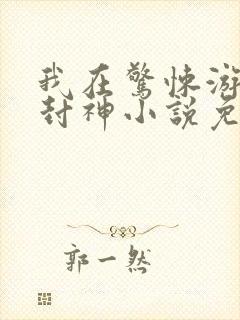 我在驚悚游
封神小說免
郭一然